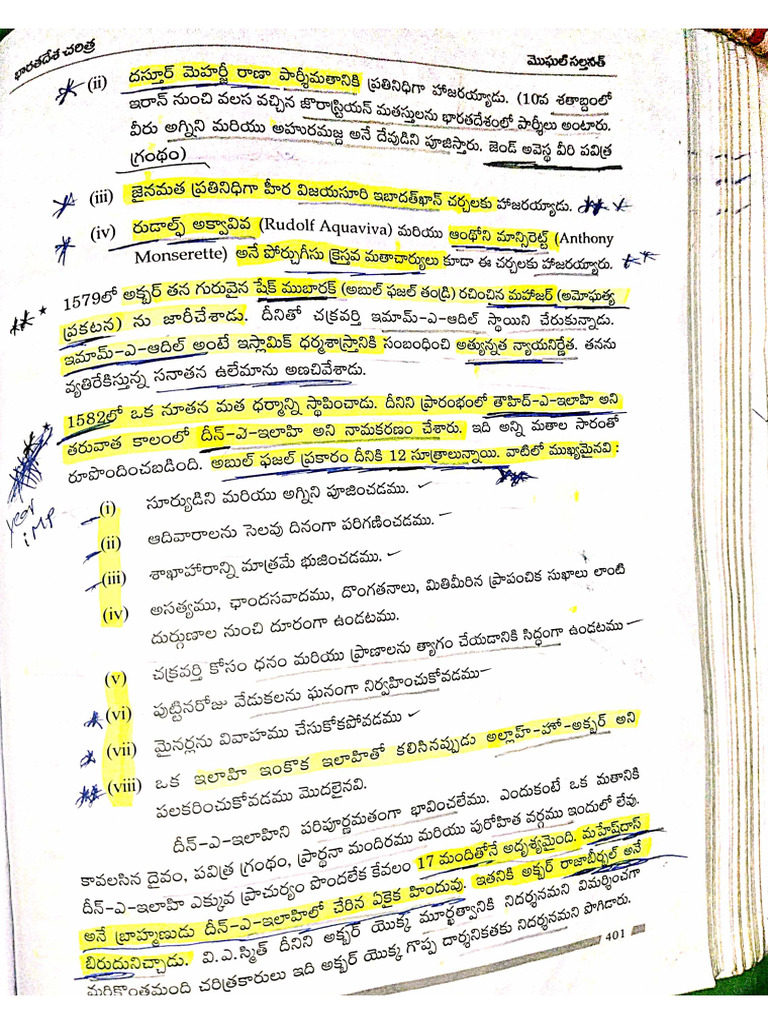 భారతదేశ చరిత్ర
మొఘల్ సల్తనత్
(ii) దస్తూర్ మెహర్జీ రాణా పార్శీమతానికి ప్రతినిధిగా హాజరయ్యాడు. (10వ శతాబ్దంలో
ఇరాన్ నుంచి వలస వచ్చిన జొరాస్ట్రియన్ మతస్తులను భారతదేశంలో పార్శీలు అంటారు.
వీరు అగ్నిని మరియు అహురమజ్ద అనే దేవుడిని పూజిస్తారు. జెండ్ అవెస్థ వీరి పవిత్ర
గ్రంథం)
(iii) జైనమత ప్రతినిధిగా హీర విజయసూరి ఇబాదత్‌ఖాన్ చర్చలకు హాజరయ్యాడు.
(iv) రుడాల్ఫ్ అక్వావివ (Rudolf Aquaviva) మరియు ఆంథోని మాన్సిరెట్ట్ (Anthony
Monserette) అనే పోర్చుగీసు క్రైస్తవ మతాచార్యులు కూడా ఈ చర్చలకు హాజరయ్యారు.
1579లో అక్బర్ తన గురువైన షేక్ ముబారక్ (అబుల్ ఫజల్ తండ్రి) రచించిన మహాజర్ (అమోఘత్వ
ప్రకటన) ను జారీచేశాడు. దీనితో చక్రవర్తి ఇమామ్-ఎ-ఆదిల్ స్థాయిని చేరుకున్నాడు.
ఇమామ్-ఎ-ఆదిల్ అంటే ఇస్లామిక్ ధర్మశాస్త్రానికి సంబంధించి అత్యున్నత న్యాయనిర్ణేత. తనను
వ్యతిరేకిస్తున్న సనాతన ఉలేమాను అణచివేశాడు.
1582లో ఒక నూతన మత ధర్మాన్ని స్థాపించాడు. దీనిని ప్రారంభంలో తౌహిద్-ఎ-ఇలాహి అని
తరువాత కాలంలో దీన్-ఎ-ఇలాహి అని నామకరణం చేశారు. ఇది అన్ని మతాల సారంతో
రూపొందించబడింది. అబుల్ ఫజల్ ప్రకారం దీనికి 12 సూత్రాలున్నాయి. వాటిలో ముఖ్యమైనవి :
year
imp
(i) సూర్యుడిని మరియు అగ్నిని పూజించడము.
(ii) ఆదివారాలను సెలవు దినంగా పరిగణించడము.
(iii) శాఖాహారాన్ని మాత్రమే భుజించడము.
(iv) అసత్యము, ఛాందసవాదము, దొంగతనాలు, మితిమీరిన ప్రాపంచిక సుఖాలు లాంటి
దుర్గుణాల నుంచి దూరంగా ఉండటము.
(v) చక్రవర్తి కోసం ధనం మరియు ప్రాణాలను త్యాగం చేయడానికి సిద్ధంగా ఉండటము
(vi) పుట్టినరోజు వేడుకలను ఘనంగా నిర్వహించుకోవడము
(vii) మైనర్లను వివాహము చేసుకోకపోవడము
(viii) ఒక ఇలాహి ఇంకొక ఇలాహితో కలిసినప్పుడు అల్లాహ్-హో-అక్బర్ అని
పలకరించుకోవడము మొదలైనవి.
దీన్-ఎ-ఇలాహిని పరిపూర్ణమతంగా భావించలేము. ఎందుకంటే ఒక మతానికి
కావలసిన దైవం, పవిత్ర గ్రంథం, ప్రార్థనా మందిరము మరియు పురోహిత వర్గము ఇందులో లేవు.
దీన్-ఎ-ఇలాహి ఎక్కువ ప్రాచుర్యం పొందలేక కేవలం 17 మందితోనే అదృశ్యమైంది. మహేష్‌దాస్
అనే బ్రాహ్మణుడు దీన్-ఎ-ఇలాహిలో చేరిన ఏకైక హిందువు. ఇతనికి అక్బర్ రాజాబీర్బల్ అనే
బిరుదునిచ్చాడు. వి.ఎ.స్మిత్ దీనిని అక్బర్ యొక్క మూర్ఖత్వానికి నిదర్శనమని విమర్శించగా
మరికొంతమంది చరిత్రకారులు ఇది అక్బర్ యొక్క గొప్ప దార్శనికతకు నిదర్శనమని పొగిడారు.
401